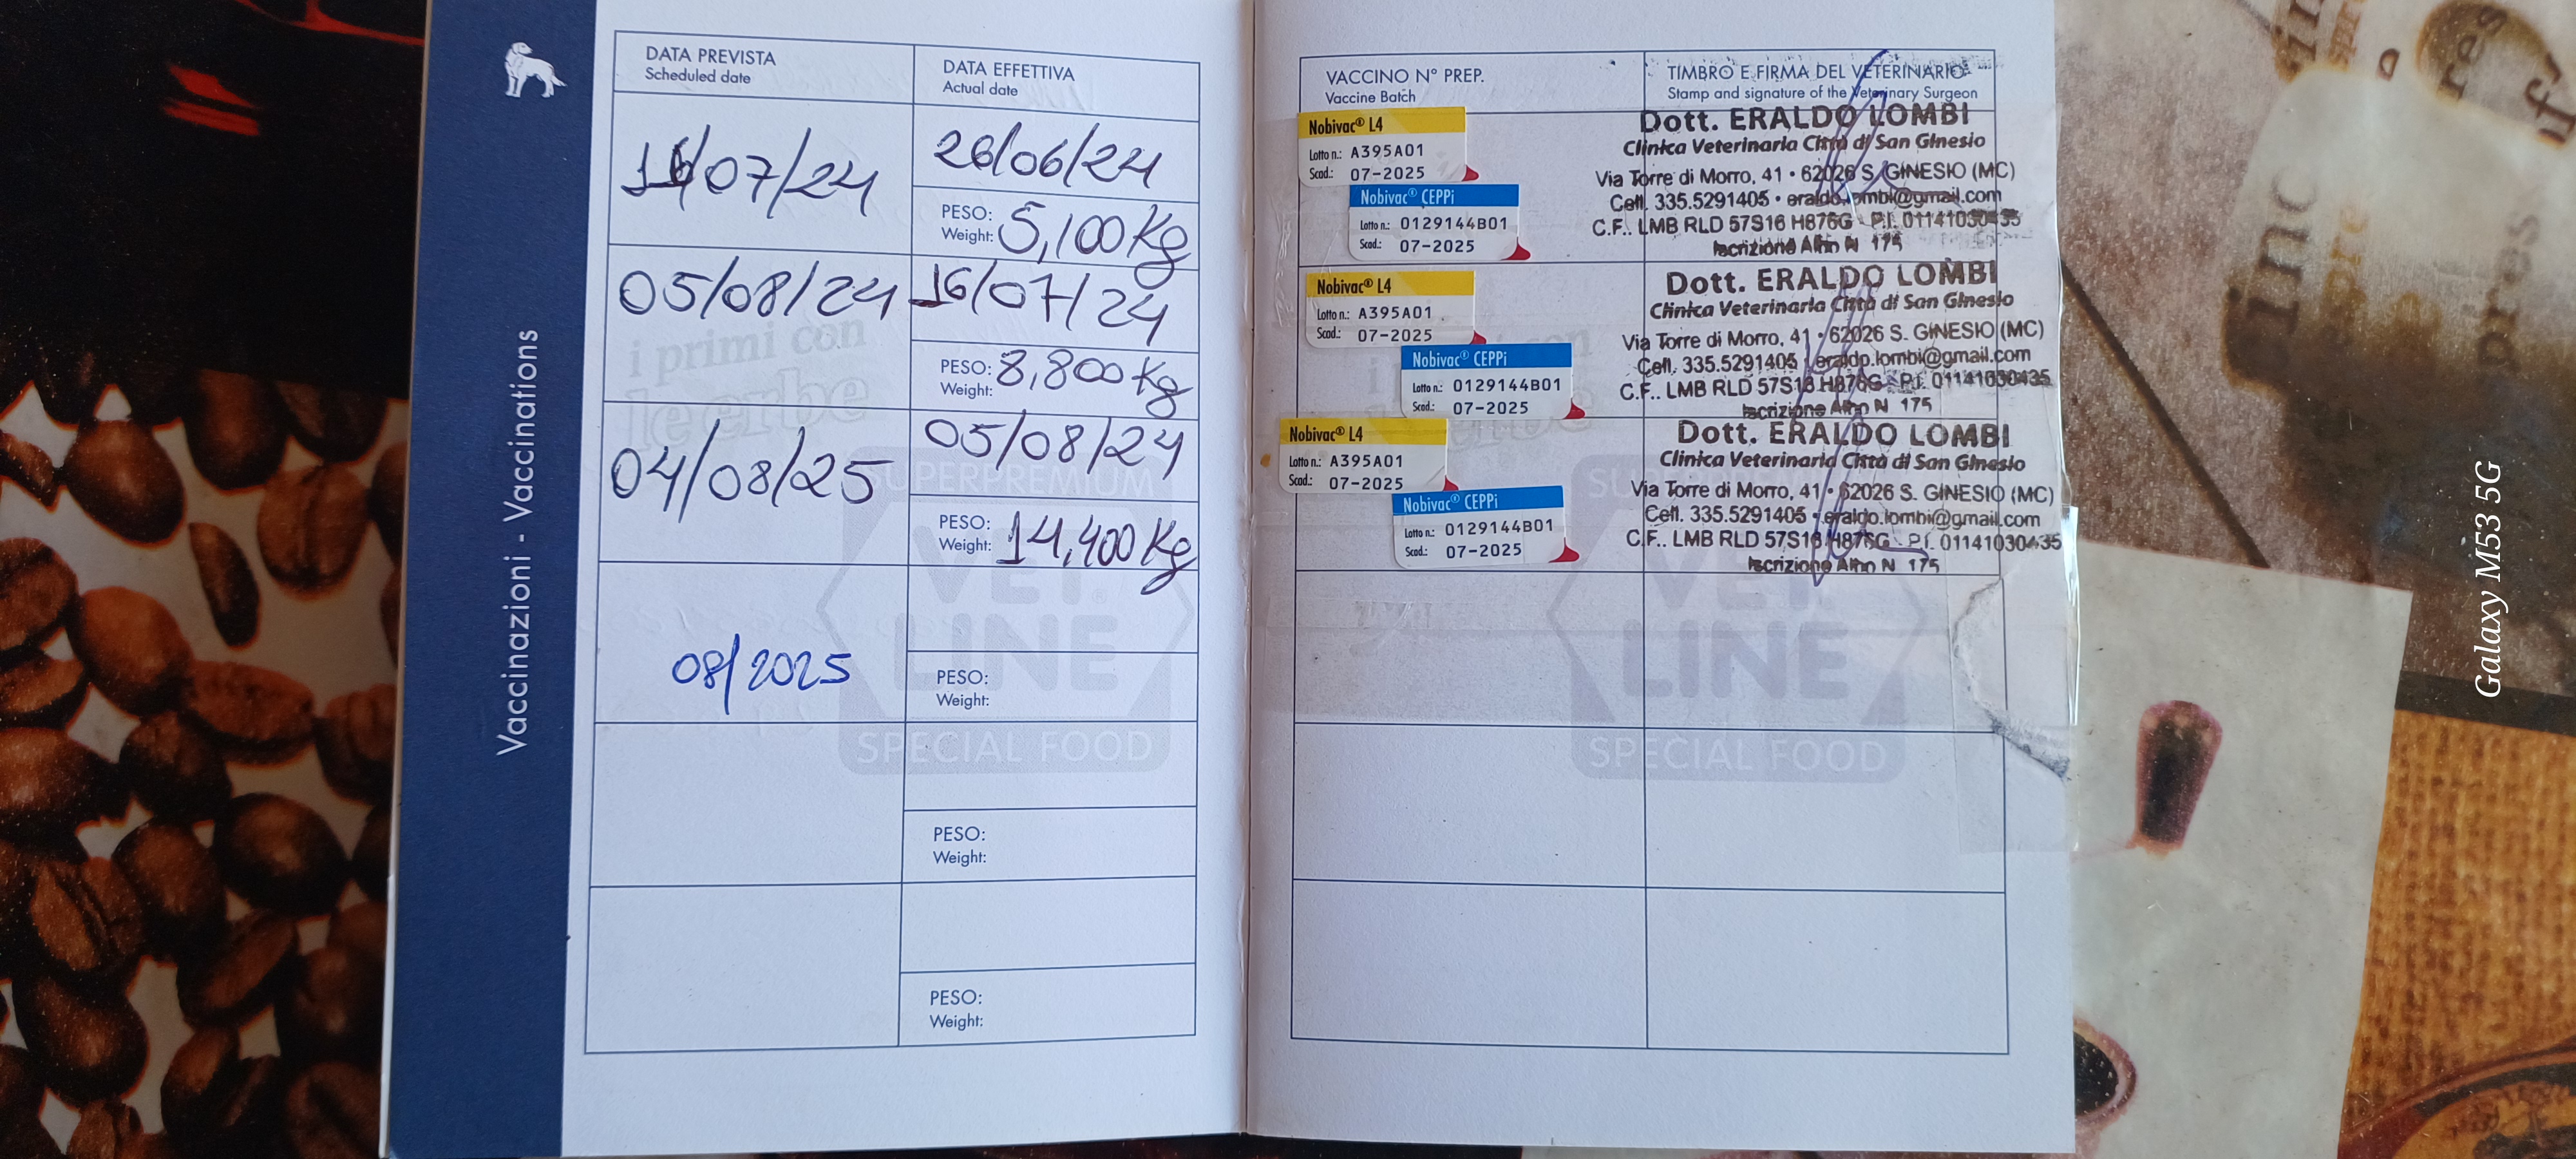 Vaccinazioni - Vaccinations
DATA PREVISTA
Scheduled date
DATA EFFETTIVA
Actual date
16/07/24
26/06/24
PESO:
Weight: 5,100 Kg
05/08/24
16/07/24
PESO:
Weight: 8,800 Kg
04/08/25
05/08/24
PESO:
Weight: 14,400 Kg
08/2025
PESO:
Weight:
PESO:
Weight:
PESO:
Weight:
i primi con
le erbe
SUPERPREMIUM
VET
LINE
SPECIAL FOOD
VACCINO N° PREP.
Vaccine Batch
TIMBRO E FIRMA DEL VETERINARIO
Stamp and signature of the Veterinary Surgeon
Nobivac® L4
Lotto n.: A395A01
Scad.: 07-2025
Nobivac® CEPPi
Lotto n.: 0129144B01
Scad.: 07-2025
Dott. ERALDO LOMBI
Clinica Veterinaria Città di San Ginesio
Via Torre di Morro, 41 • 62026 S. GINESIO (MC)
Cell. 335.5291405 • eraldo.lombi@gmail.com
C.F.. LMB RLD 57S16 H876G - P.I. 01141030435
Iscrizione Albo N 175
Nobivac® L4
Lotto n.: A395A01
Scad.: 07-2025
Nobivac® CEPPi
Lotto n.: 0129144B01
Scad.: 07-2025
Dott. ERALDO LOMBI
Clinica Veterinaria Città di San Ginesio
Via Torre di Morro, 41 • 62026 S. GINESIO (MC)
Cell. 335.5291405 • eraldo.lombi@gmail.com
C.F.. LMB RLD 57S16 H876G - P.I. 01141030435
Iscrizione Albo N 175
Nobivac® L4
Lotto n.: A395A01
Scad.: 07-2025
Nobivac® CEPPi
Lotto n.: 0129144B01
Scad.: 07-2025
Dott. ERALDO LOMBI
Clinica Veterinaria Città di San Ginesio
Via Torre di Morro, 41 • 62026 S. GINESIO (MC)
Cell. 335.5291405 • eraldo.lombi@gmail.com
C.F.. LMB RLD 57S16 H876G - P.I. 01141030435
Iscrizione Albo N 175
VET
LINE
SPECIAL FOOD
Galaxy M53 5G